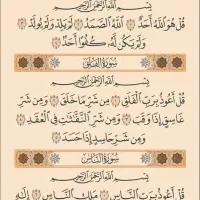 بِسْمِ اللَّهِ الرَّحْمَٰنِ الرَّحِيمِ
قُلْ هُوَ اللَّهُ أَحَدٌ ۝ اللَّهُ الصَّمَدُ ۝ لَمْ يَلِدْ وَلَمْ يُولَدْ ۝
وَلَمْ يَكُن لَّهُ كُفُوًا أَحَدٌ ۝
سُورَةُ الْفَلَقِ
بِسْمِ اللَّهِ الرَّحْمَٰنِ الرَّحِيمِ
قُلْ أَعُوذُ بِرَبِّ الْفَلَقِ ۝ مِن شَرِّ مَا خَلَقَ ۝ وَمِن شَرِّ
غَاسِقٍ إِذَا وَقَبَ ۝ وَمِن شَرِّ النَّفَّاثَاتِ فِي الْعُقَدِ ۝
وَمِن شَرِّ حَاسِدٍ إِذَا حَسَدَ ۝
سُورَةُ النَّاسِ
بِسْمِ اللَّهِ الرَّحْمَٰنِ الرَّحِيمِ
قُلْ أَعُوذُ بِرَبِّ النَّاسِ ۝ مَلِكِ النَّاسِ ۝ إِلَٰهِ